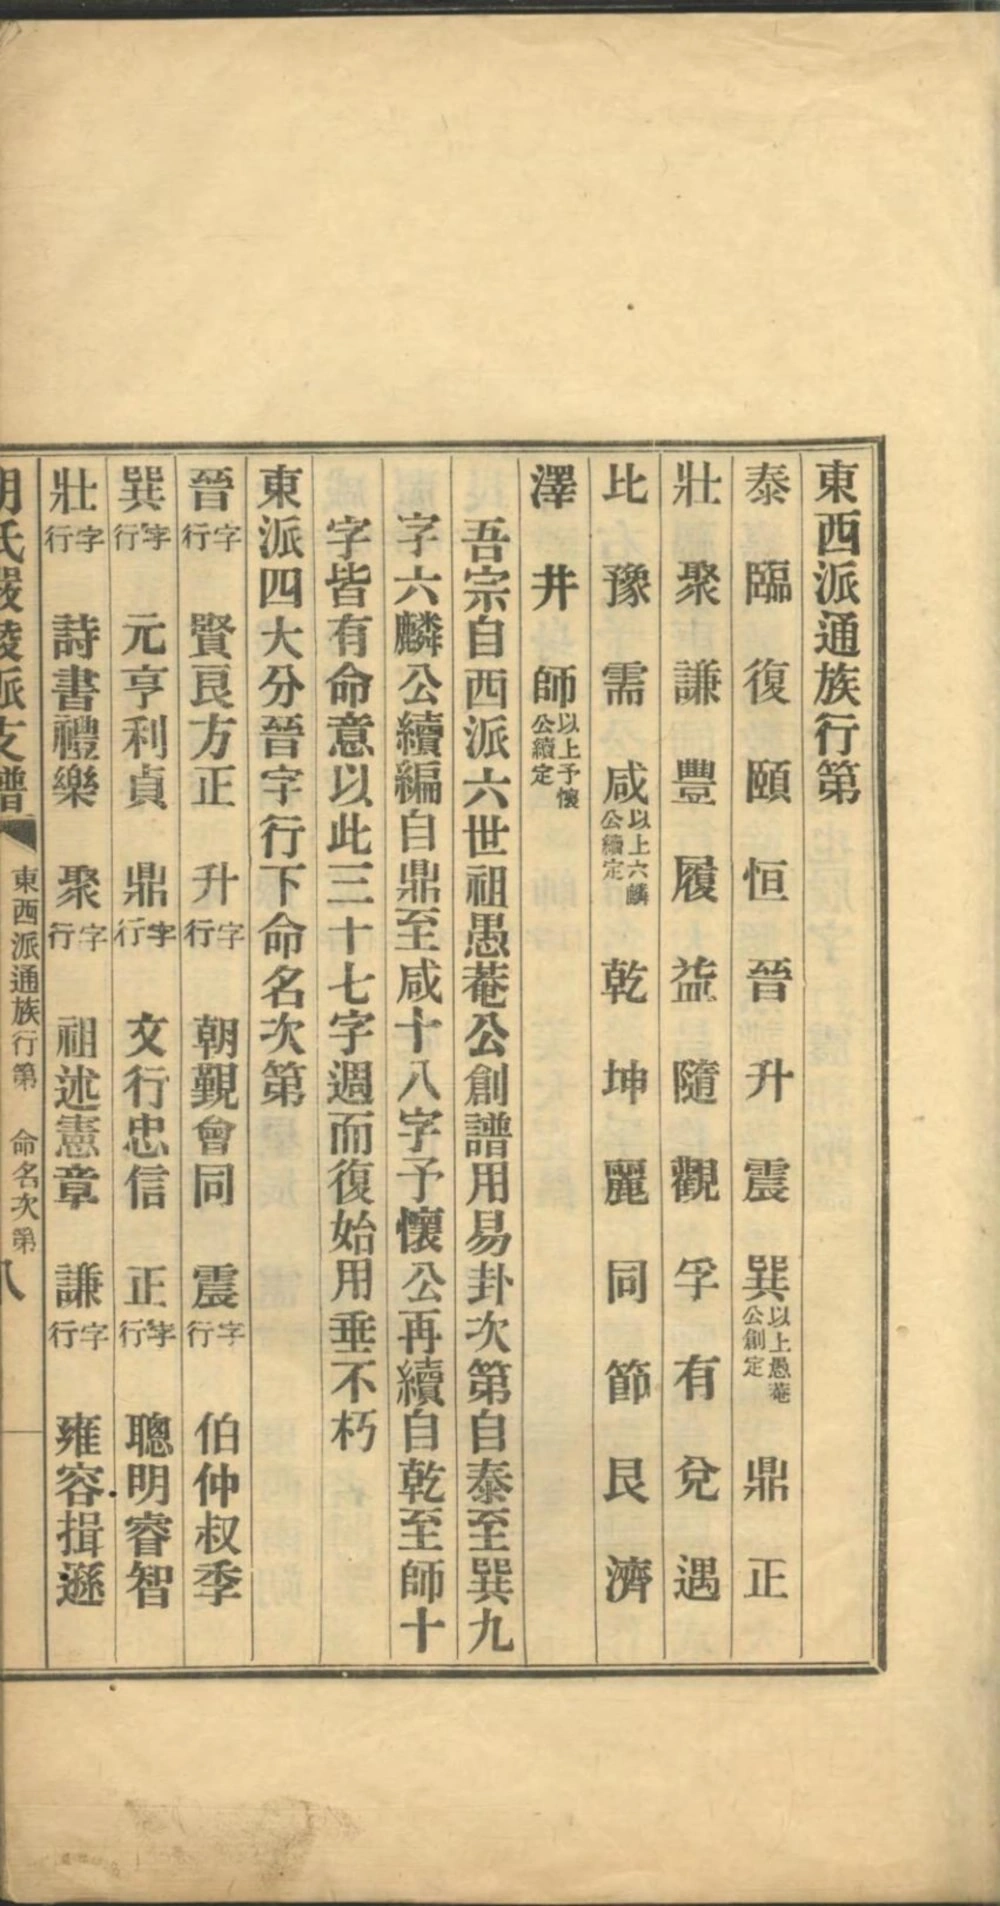 東西派通族行第
泰臨復頤恒晉升震巽以上愚菴公創定鼎正
壯聚謙豐履益隨觀孚有兌遇
比豫需咸以上六麟公續定乾坤麗同節艮濟
澤井師以上予懷公續定
吾宗自西派六世祖愚菴公創譜用易卦次第自泰至巽九
字六麟公續編自鼎至咸十八字予懷公再續自乾至師十
字皆有命意以此三十七字週而復始用垂不朽
東派四大分晉字行下命名次第
晉字行 賢良方正 升字行 朝覲會同 震字行 伯仲叔季
巽字行 元亨利貞 鼎字行 文行忠信 正字行 聰明睿智
壯字行 詩書禮樂 聚字行 祖述憲章 謙字行 雍容揖遜
胡氏嚴陵派支譜 東西派通族行第 命名次第 八